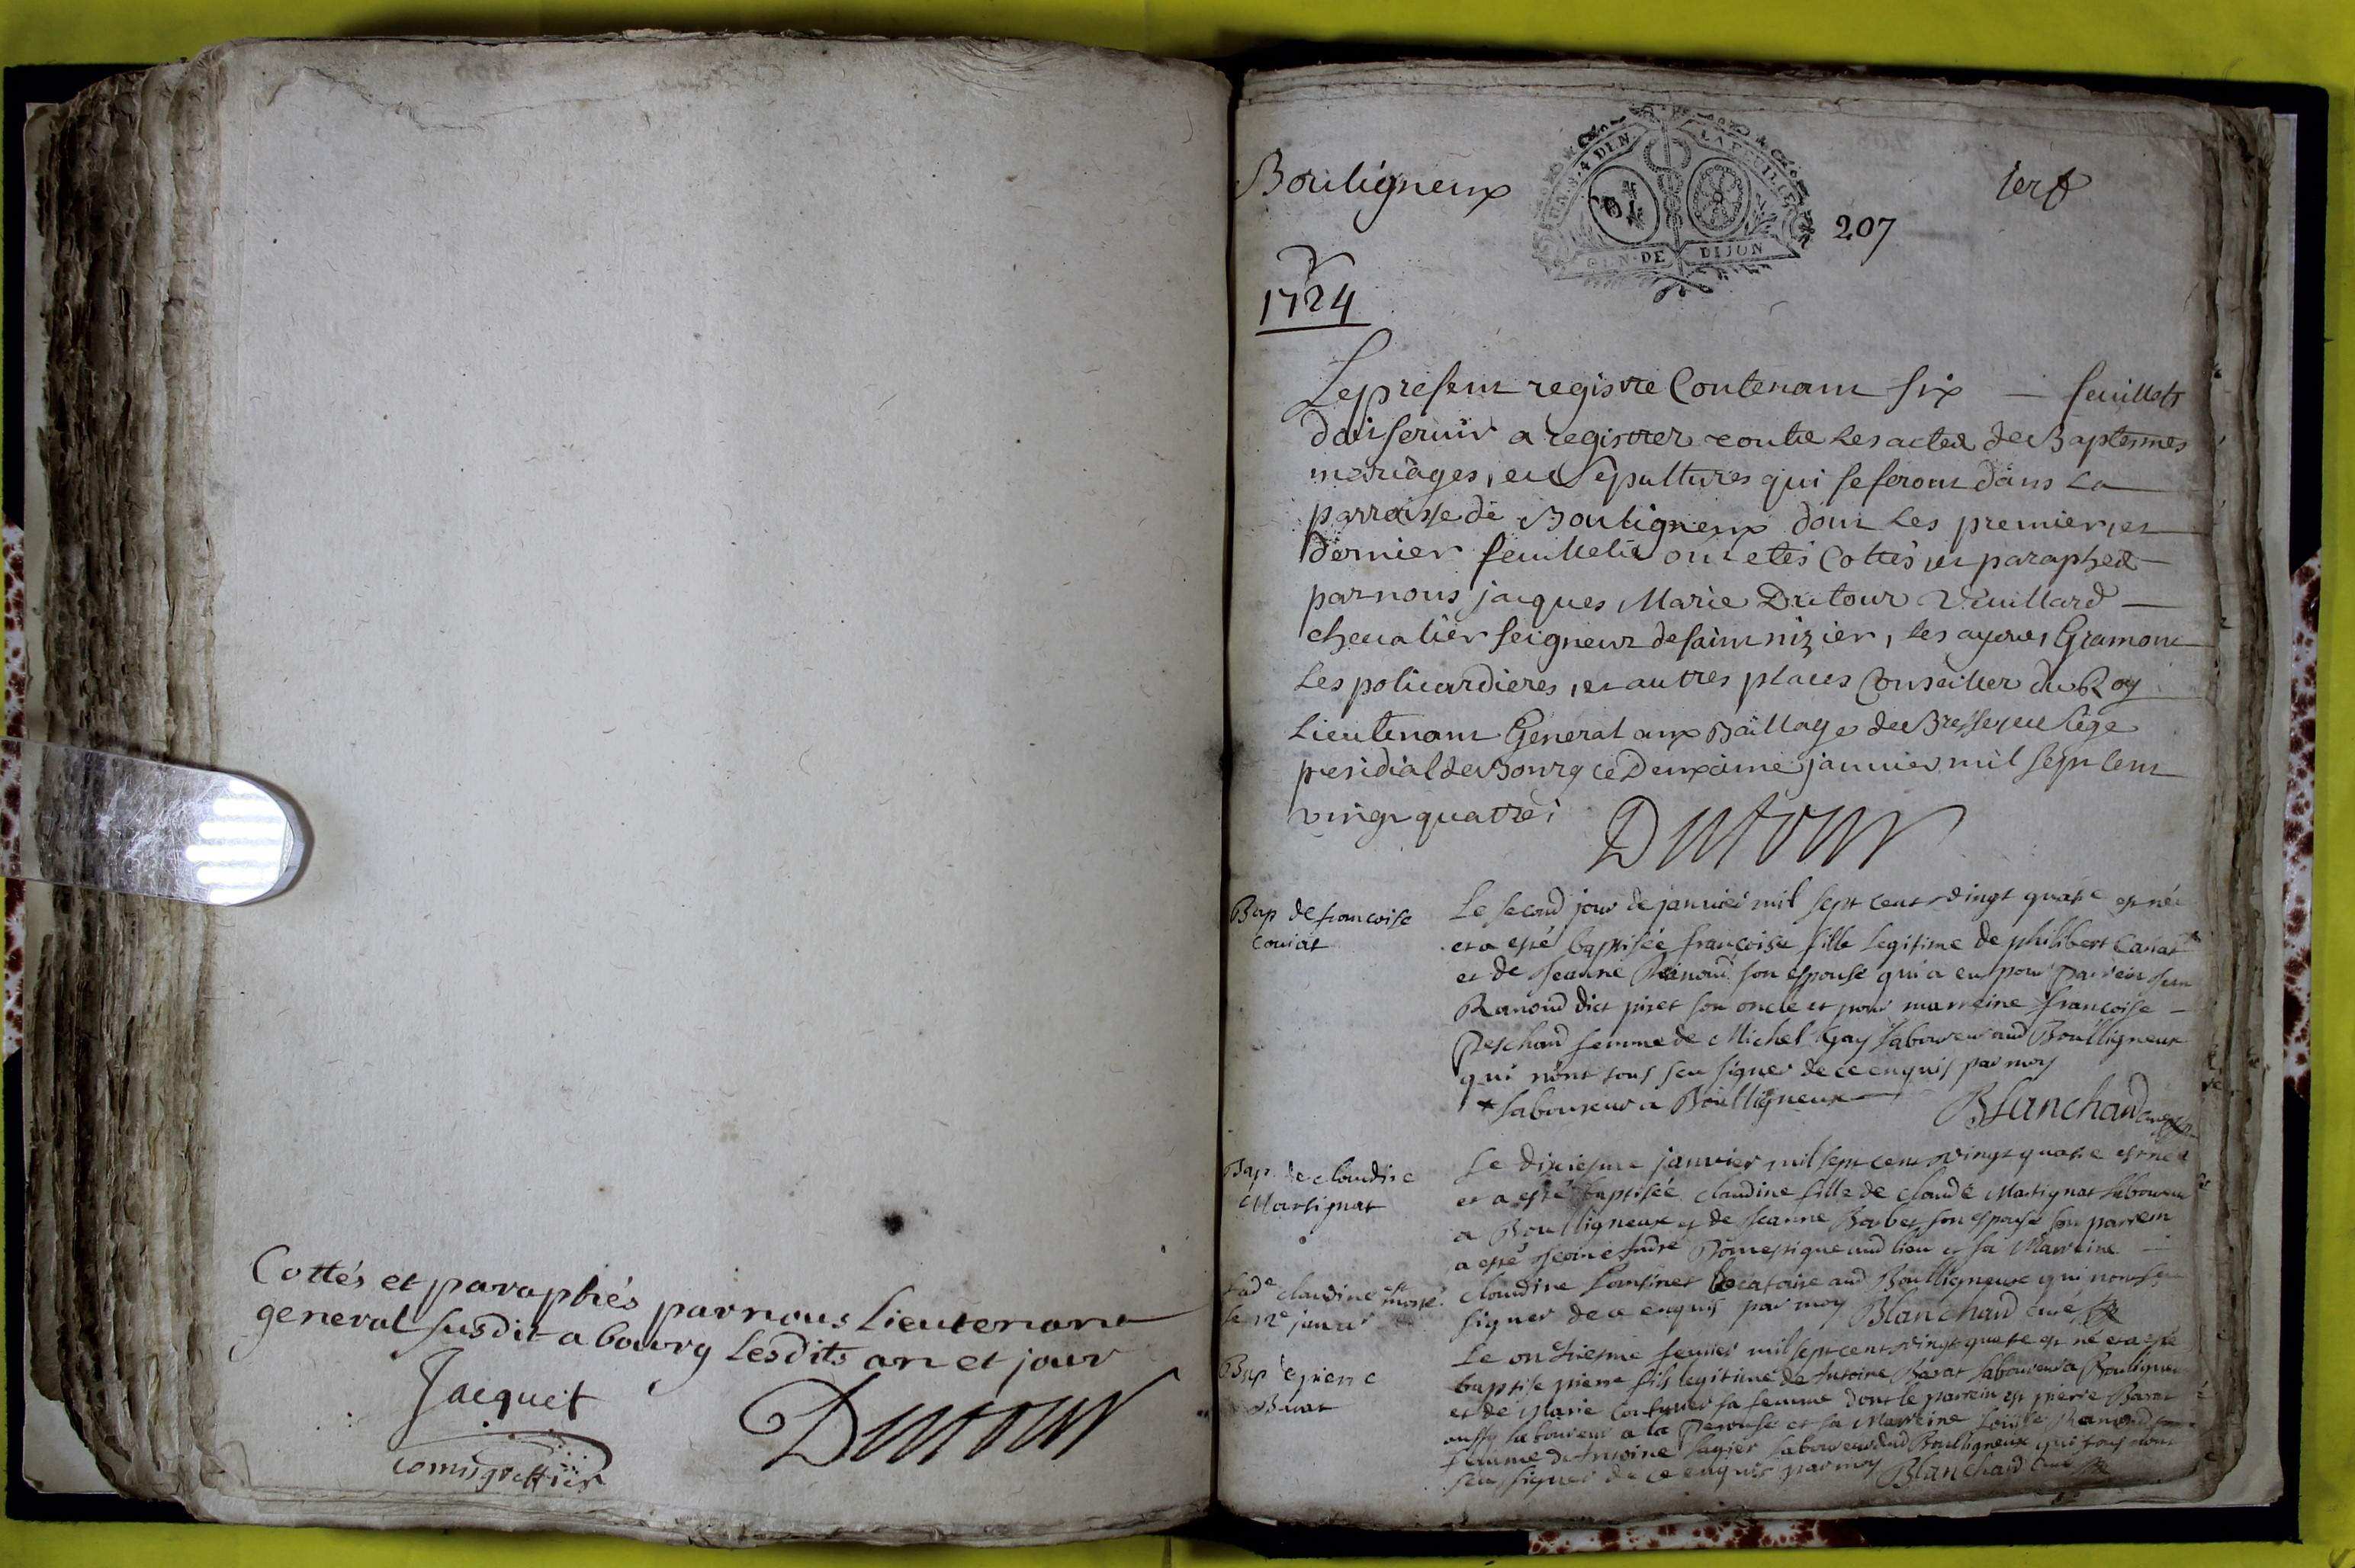 Cottés et paraphés par nous Lieutenant
general susdit a bourg lesdits an et jour
Jacquet
comis greffier
Dutour
Bouligneux
GEN. DE DIJON
207
1er f
1724
Le present registre Contenant six — feuillets
doit servir a registrer toutte Les actes de Baptesmes
mariages, et Sepultures qui se feront dans La
parroisse de Bouligneux dont Les premier, et
dernier feuillets ont etés Cottés et paraphés
par nous jacques Marie Dutour Vuillard —
chevalier seigneur de saint nizier, les ayoux, Gramont
Les policardieres, et autres places Conseiller du Roy
Lieutenant General aux Baillage de Bresse, et siege
presidial de Bourg ce Deuxieme janvier mil sept cent
vingt quatre;
Dutour
Bap de francoise
Caniat
Le second jour de janvier mil sept cent vingt quatre est née
et a esté baptisée francoise fille legitime de philibert
et de Jeanne Ramond son espouse qui a eu pour parrein
Ramond dict piret son oncle et pour marreine francoise —
Peschaud femme de Michel Gay laboureur aud Boulligneux
qui n'ont tous seu signer de ce enquis par moy
* laboureur a Boulligneux Blanchard curé
Bap. de claudine
Martignat
Le dixiesme janvier mil sept cent vingt quatre est née
et a esté baptisée claudine fille de claude Martignat laboureur
a Boulligneux et de Jeanne Barbet son espouse son parrein
a esté Domestique aud lieu et sa Marreine —
Lade claudine est morte
le 12e janvr
claudine locataire aud Boulligneux qui n'ont seu
signer de ce enquis par moy Blanchard curé
Bap de pierre
Buat
Le onziesme fevrier mil sept cent vingt quatre est né et a esté
baptisé pierre fils legitime de Antoine laboureur a Bouligneux
et de Marie sa femme dont le parrein est pierre
aussy laboureur a la Perouse et sa Marreine Ramond
femme de Antoine laboureur aud Boulligneux qui tous n'ont
seu signer de ce enquis par moy Blanchard curé